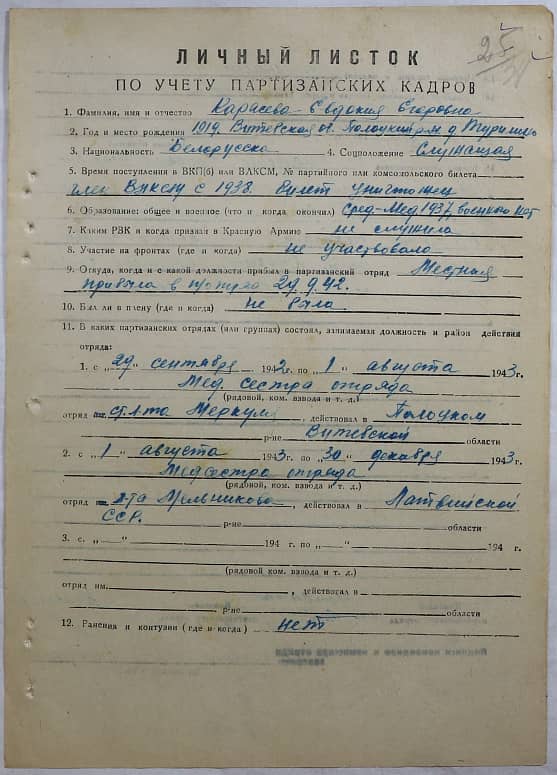 25
ЛИЧНЫЙ ЛИСТОК
ПО УЧЕТУ ПАРТИЗАНСКИХ КАДРОВ
1. Фамилия, имя и отчество Карасева Евдокия Егоровна
2. Год и место рождения 1919. Витебская об. Полоцкий р-н д.
3. Национальность Белорусска 4. Соцположение Служащая
5. Время поступления в ВКП(б) или ВЛКСМ, № партийного или комсомольского билета
член ВЛКСМ с 1938. билет уничтожен
6. Образование: общее и военное (что и когда окончил) Сред-Мед 1937, военного нет
7. Каким РВК и когда призван в Красную Армию не служила
8. Участие на фронтах (где и когда) не участвовала
9. Откуда, когда и с какой должности прибыл в партизанский отряд Местная
прибыла в отряд 29.9.42.
10. Был ли в плену (где и когда) не была
11. В каких партизанских отрядах (или группах) состоял, занимаемая должность и район действия
отряда:
1. с "29" сентября 1942 г. по "1" августа 1943 г.
Мед. сестра отряда
(рядовой, ком. взвода и т. д.)
отряд ст. л-та Меркул, действовал в Полоцком
р-не Витебской области
2. с "1" августа 1943 г. по "30" декабря 1943 г.
Медсестра отряда
(рядовой, ком. взвода и т. д.)
отряд л-та Мельникова, действовал в Латвийской
ССР. р-не области
3. с. " " 194 г. по " " 194 г.
(рядовой ком. взвода и т. д.)
отряд им. , действовал в
р-не области
12. Ранения и контузии (где и когда) нет